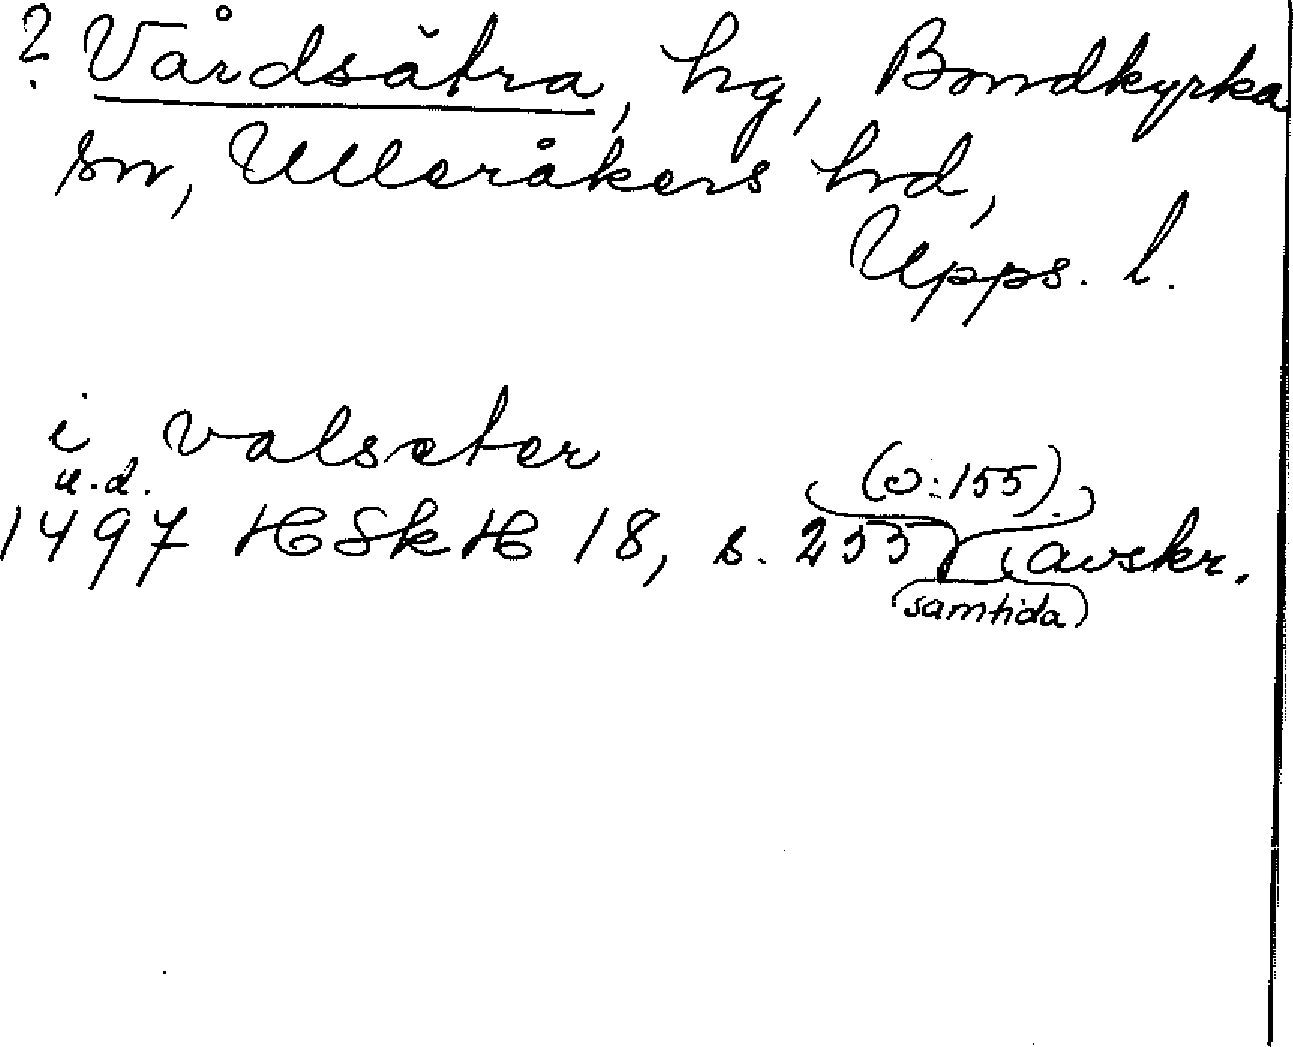 ? Vårdsätra, hg, Bondkyrka
sn, Ulleråkers hd,
Upps. l.
i valseter
u.d.
1497 HSkH 18, s. 255 (o: 155) (samtida) avskr.